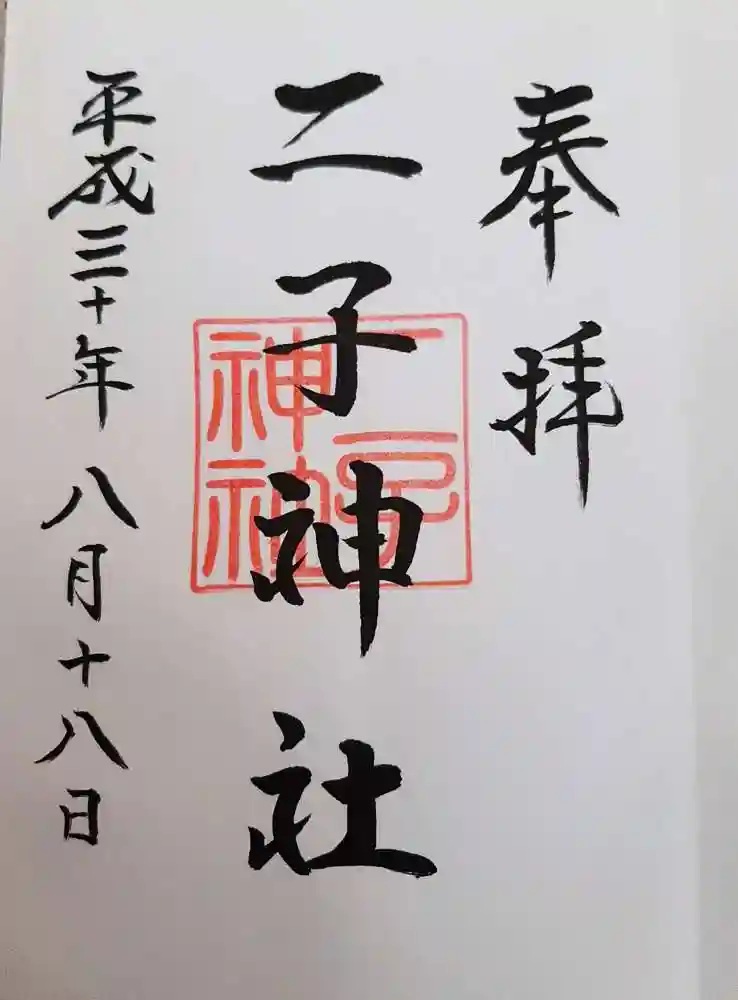 奉拝
二子神社
平成三十年八月十八日